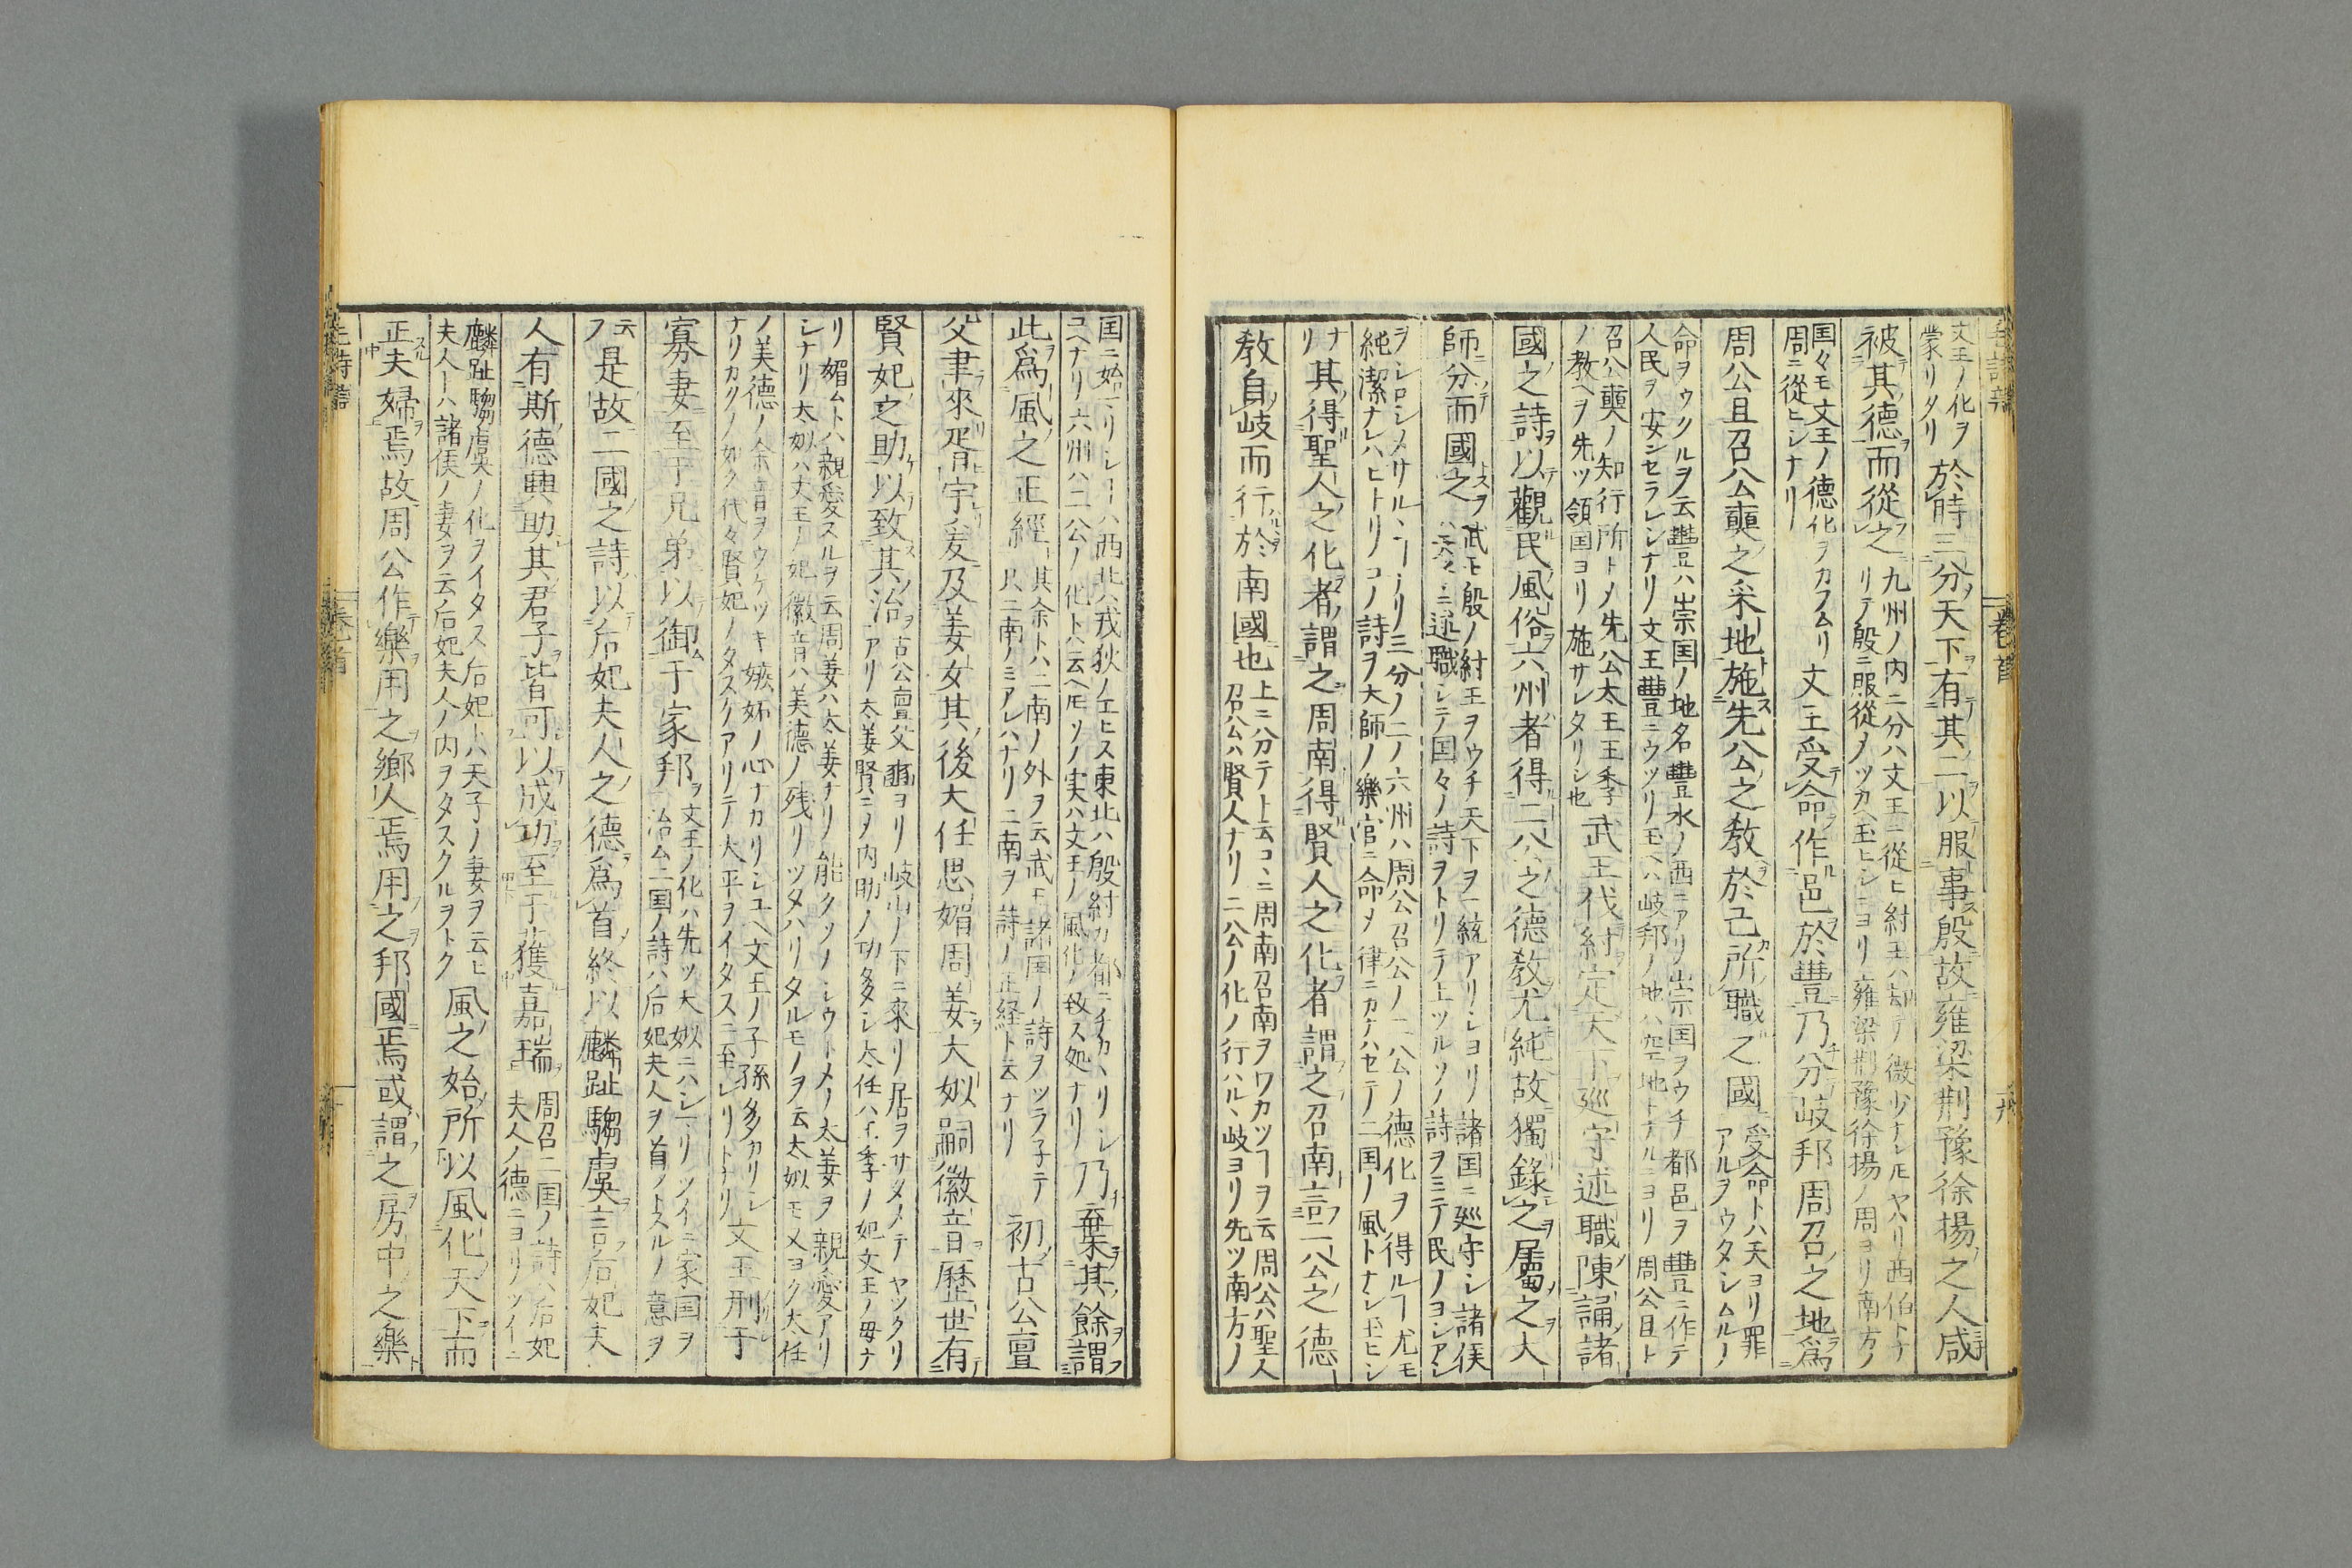 文王ノ化ヲ蒙リタリ於時三分天下有其二以服事殷故雍梁荊豫徐揚之人咸
被其德而從之九州ノ内二分ハ文王ニ從ヒ紂王ハ却テ微少ナレ𪜈ヤハリ西伯トナリテ殷ニ服從ノツカヘ玉ヒシニヨリ雍梁荊豫徐揚ノ周ヨリ南方ノ
国々モ文王ノ德化ヲカフムリ周ニ從ヒシナリ文王受命作邑於豐乃分岐邦周召之地爲
周公旦召公奭之采地施先公之教於己所職之國受命トハ天ヨリ罪アルヲウタシムルノ
命ヲウクルヲ云豐ハ崇国ノ地名豐水ノ西ニアリ崇国ヲウチ都邑ヲ豐ニ作テ人民ヲ安ンセラレシナリ文王豐ニウツリ玉ヘハ岐邦ノ地ハ空地トナルニヨリ周公旦ト
召公奭ノ知行所トメ先公太王王季ノ教ヘヲ先ツ領国ヨリ施サレタリシ也武王伐紂定天下巡守述職陳誦諸
國之詩以觀民風俗六州者得二公之德教尤純故獨錄之屬之大
師分而國之武王殷ノ紂王ヲウチ天下ヲ一統アリシヨリ諸国ニ巡守シ諸侯ハ天子ニ述職シテ国々ノ詩ヲトリテ上ツルソノ詩ヲミテ民ノヨシアシ
ヲシロシメサルヽヿナリ三分ノ二ノ六州ハ周公召公ノ二公ノ德化ヲ得ルヿ尤モ純潔ナレハヒトリコノ詩ヲ大師ノ樂官ニ命メ律ニカナハセテ二国ノ風トナシ玉ヒシ
ナリ其得聖人之化者謂之周南得賢人之化者謂之召南言二公之德
教自岐而行於南國也上ニ分テト云コヽニ周南召南ヲワカツヿヲ云周公ハ聖人召公ハ賢人ナリ二公ノ化ノ行ハルヽ岐ヨリ先ツ南方ノ
国ニ始マリシヿハ西北ハ戎狄ノエヒス東北ハ殷紂カ都ニチカヽリシユヘナリ六州ハ二公ノ化トハ云ヘ𪜈ソノ実ハ文王ノ風化ノ致ス処ナリ乃棄其餘謂
此爲風之正經其余トハ二南ノ外ヲ云武王諸国ノ詩ヲツラ子テ只二南ノミアレハナリ二南ヲ詩ノ正経ト云ナリ初古公亶
父聿來胥宇爰及姜女其後大任思媚周姜大姒嗣徽音歷世有
賢妃之助以致其治古公亶父豳ヨリ岐山ノ下ニ來リ居ヲサタメテヤツクリアリ太姜賢ニメ内助ノ功多シ太任ハ王季ノ妃文王ノ母ナ
リ媚ムトハ親愛スルヲ云周姜ハ太姜ナリ能クソノシウトメノ太姜ヲ親愛アリシナリ太姒ハ文王ノ妃徽音ハ美德ノ残リツタハリタルモノヲ云太姒モメヨク太任
ノ美德ノ余音ヲウケツキ嫉妬ノ心ナカリシユヘ文王ノ子孫多カリシナリカクノ如ク代々賢妃ノタスケアリテ大平ヲイタスニ至レリトナリ文王刑于
寡妻至于兄弟以御于家邦文王ノ化ハ先ツ大姒ニハシマリツイニ家国ヲ治ム二国ノ詩ハ后妃夫人ヲ首ノトスルノ意ヲ
云フ是故二國之詩以后妃夫人之德爲首終以麟趾騶虞言后妃夫
人有斯德興助其君子皆可以成功至于獲嘉瑞周召二国ノ詩ハ后妃夫人ノ德ニヨリツイニ
麟趾騶虞ノ化ヲイタス后妃トハ天子ノ妻ヲ云ヒ夫人トハ諸侯ノ妻ヲ云后妃夫人ノ内ヲタスクルヲトク風之始所以風化天下而
正夫婦焉故周公作樂用之鄉人焉用之邦國焉或謂之房中之樂